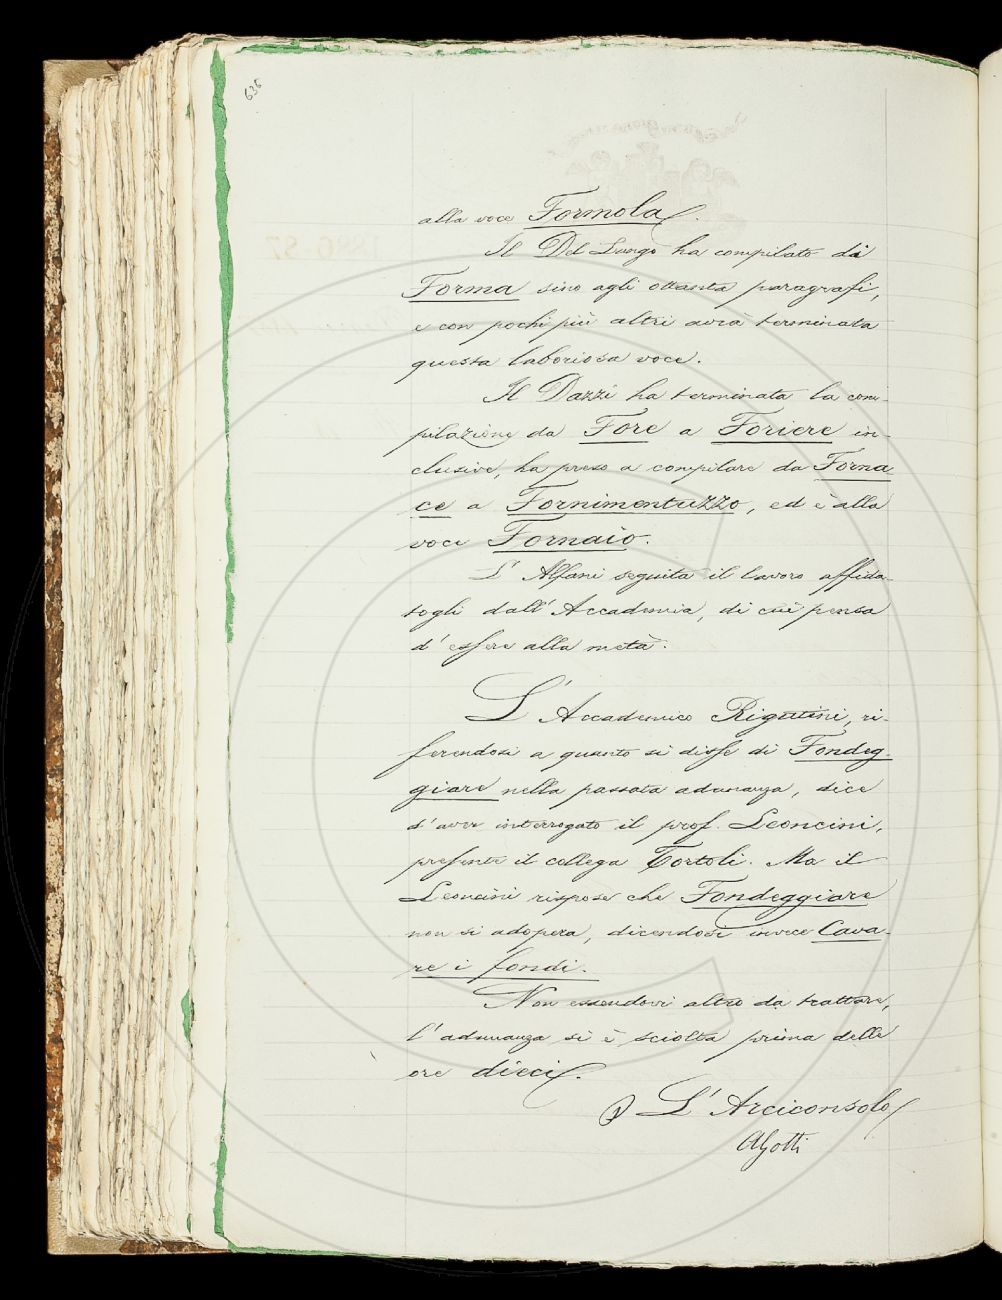 636
alla voce Formola.
Il Del Lungo ha compilato di
Forma sino agli ottanta paragrafi,
e con pochi più altri avrà terminata
questa laboriosa voce.
Il Dazzi ha terminata la com-
pilazione da Fore a Foriere in-
clusive, ha preso a compilare da Forna-
ce a Fornimentuzzo, ed è alla
voce Fornaio.
L'Alfani seguita il lavoro affida-
togli dall'Accademia, di cui pensa
d'essere alla metà.
L'Accademico Rigutini, ri-
ferendosi a quanto si disse di Fondeg-
giare nella passata adunanza, dice
d'aver interrogato il prof. Leoncini,
presente il collega Tortoli. Ma il
Leoncini rispose che Fondeggiare
non si adopera, dicendosi invece Cava-
re i fondi.
Non essendovi altro da trattare,
l'adunanza si è sciolta prima delle
ore dieci.
L'Arciconsolo